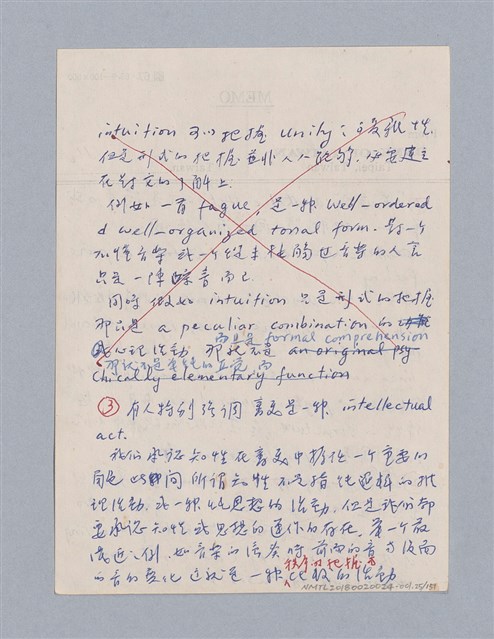 intuition 可以把握 unity 之複雜性
但是形式的把握並非人人能夠,必要建立
在對它的了解上.
例如一首 fague, 是一种 well-ordered
d well-organized tonal form. 對一个
不懂音樂或一个從未接觸过音樂的人言
只是一陣噪音而已.
同時假如 intuition 只是形式的把握
那只是 a peculiar combination 的
而且是 formal comprehension
心理活動 那就不是 an original psy-
那就不是單純的直覺 而
chically elementary function
③ 有人特別強調審美是一种 intellectual
act.
我們承認知性在審美中擔任一个重要的
角色 此間所謂知性不是指純邏輯的推
理活動或一种純思想的活動. 但是我們却
要承認知性或思想的運作的存在. 舉一个最
淺近之例. 如音樂的演奏時 前面的音与後面
秩序的把握与
的音的變化 這就是一种 比較的活動
NMTL20180020024-001.25/157